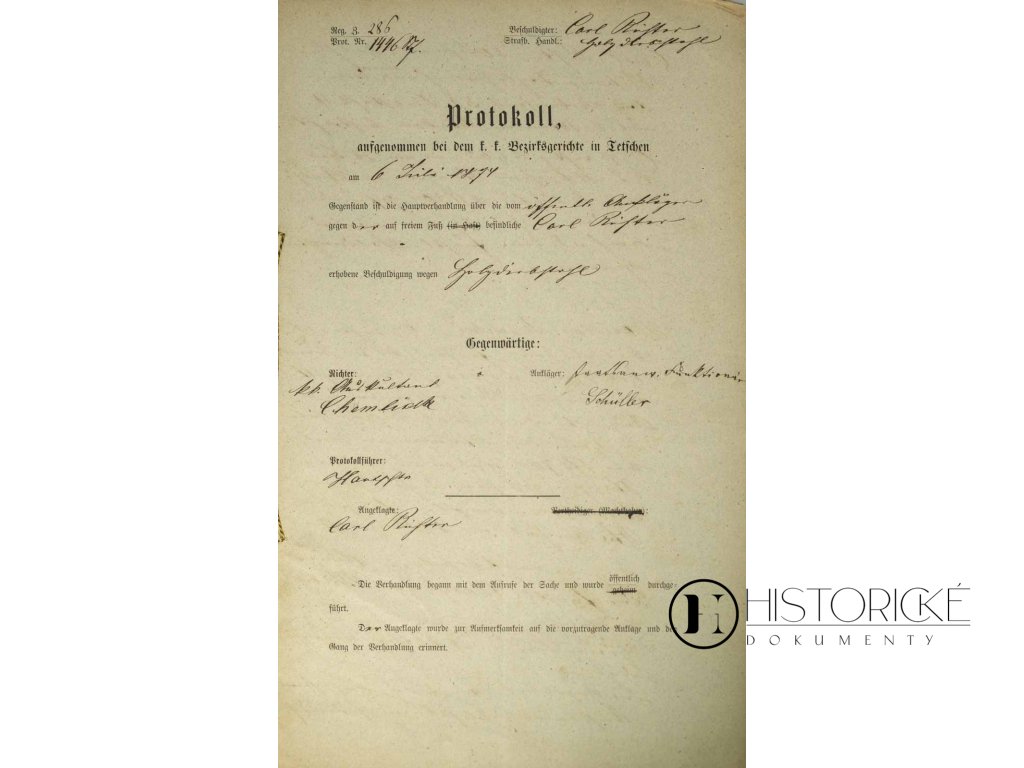 Reg. Z. 286
Prot. Nr. 1446
Beschuldigter: Carl Richter
Strafb. Handl.: Holzdiebstahl
Protokoll,
aufgenommen bei dem k. k. Bezirksgerichte in Tetschen
am 6 Juli 1874
Gegenstand ist die Hauptverhandlung über die vom öffentl. Ankläger
gegen der auf freiem Fuß (in Haft) befindliche Carl Richter
erhobene Beschuldigung wegen Holzdiebstahl
Gegenwärtige:
Richter:
kk. Auskultant
Ankläger: Funktionär
Schüller
Protokollführer:
Angeklagte:
Carl Richter
Vertheidiger (Machthaber):
Die Verhandlung begann mit dem Aufrufe der Sache und wurde öffentlich geheim durchge-
führt.
Der Angeklagte wurde zur Aufmerksamkeit auf die vorzutragende Anklage und den
Gang der Verhandlung erinnert.
HISTORICKÉ
DOKUMENTY